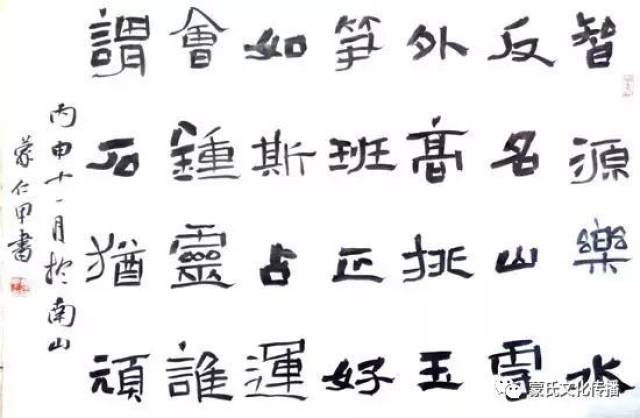 智源樂水
反名山雲
外高挑玉
笋班正好
如斯占運
會鍾靈誰
謂石猶頑
丙申十一月於南山
蒙仁甲書
蒙氏文化传播